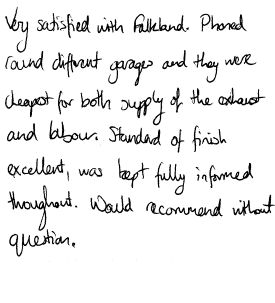 Very satisfied with Falkland. Phoned
round different garages and they were
cheapest for both supply of the exhaust
and labour. Standard of finish
excellent, was kept fully informed
throughout. Would recommend without
question.